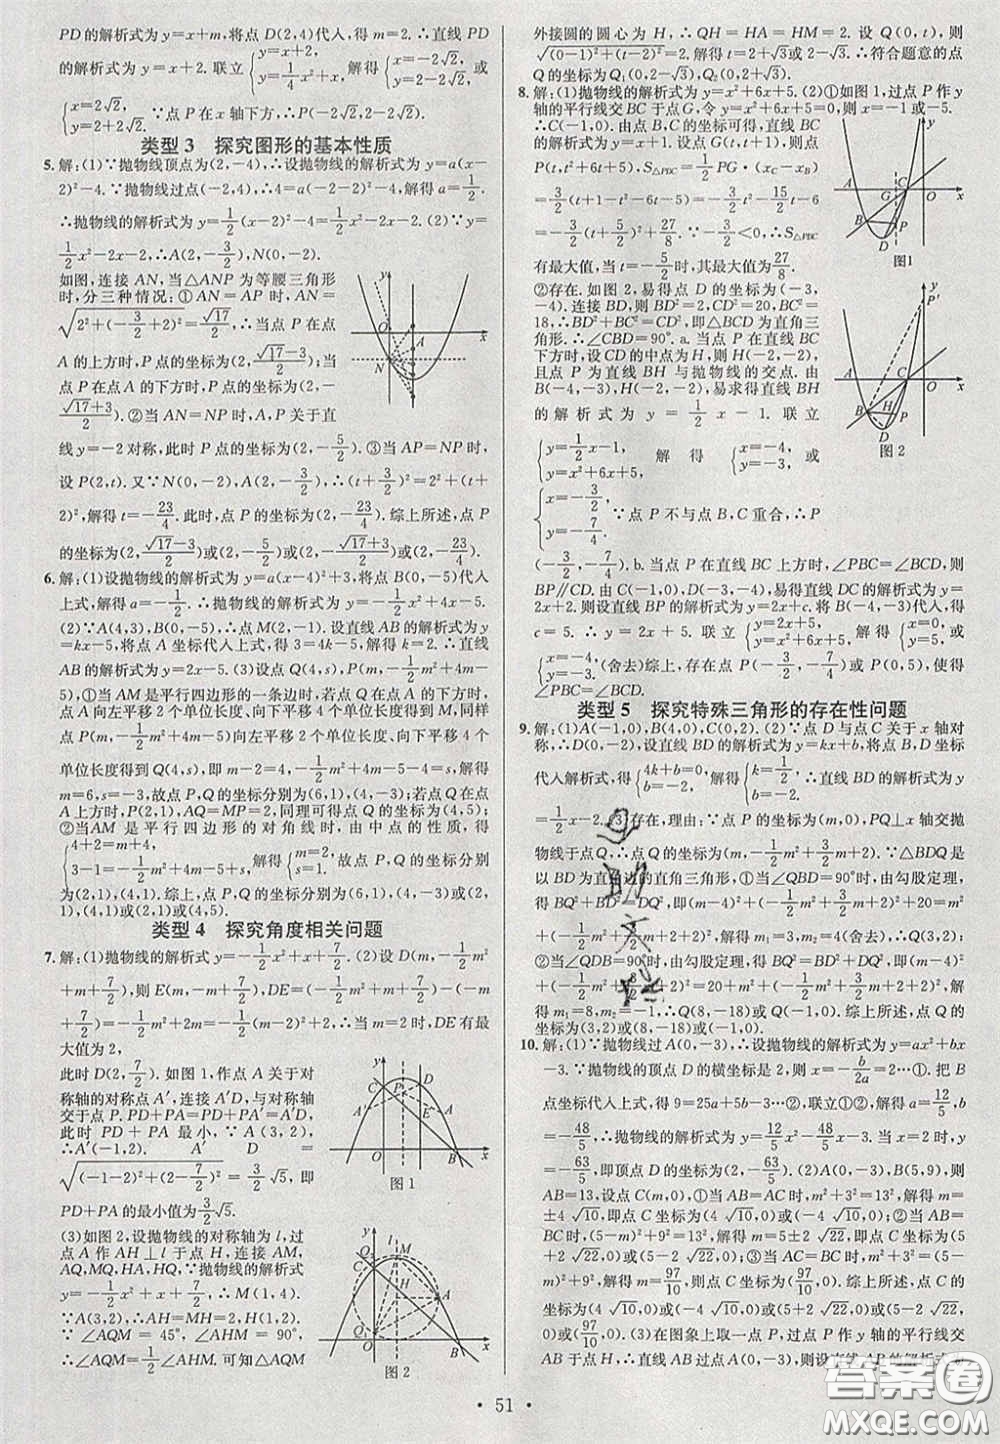 PD的解析式为y=x+m,将点D(2,4)代人,得m=2.∴直线PD
的解析式为y=x+2.联立{y=x+2, y=1/4x²+x,解得{x=-2√2, y=2-2√2或
{x=2√2, y=2+2√2.∵点P在x轴下方,∴P(-2√2,2-2√2).
类型3 探究图形的基本性质
5.解:(1)∵抛物线顶点为(2,-4),∴设抛物线的解析式为y=a(x-
2)²-4.∵抛物线过点(-2,4),∴4=a(-2-2)²-4,解得a=1/2.
∴抛物线的解析式为y=1/2(x-2)²-4=1/2x²-2x-2.(2)∵y=
1/2x²-2x-2,∴A(2,-3/2),N(0,-2).
如图,连接AN,当△ANP为等腰三角形
时,分三种情况:①AN=AP时,AN=
√2²+(-3/2+2)²=√17/2,∴当点P在点
A的上方时,P点的坐标为(2,√17-3/2),
当点P在点A的下方时,P点的坐标为(2,-
√17+3/2);②当AN=NP时,A,P关于直
线y=-2对称,此时P点的坐标为(2,-5/2).③当AP=NP时,
设P(2,t).又∵N(0,-2),A(2,-3/2),∴(t+3/2)²=2²+(t+
2)²,解得t=-23/4.此时,点P的坐标为(2,-23/4).综上所述,点P
的坐标为(2,√17-3/2)或(2,-√17+3/2)或(2,-5/2)或(2,-23/4).
6.解:(1)设抛物线的解析式为y=a(x-4)²+3,将点B(0,-5)代人
上式,解得a=-1/2,∴抛物线的解析式为y=-1/2x²+4x-5.
(2)∵A(4,3),B(0,-5),∴点M(2,-1).设直线AB的解析式为y
=kx-5,将点A坐标代人上式,得3=4k-5,解得k=2.∴直线
AB的解析式为y=2x-5.(3)设点Q(4,s),P(m,-1/2m²+4m-
5),①当AM是平行四边形的一条边时,若点Q在点A的下方时,
点A向左平移2个单位长度、向下平移4个单位长度得到M,同样
点P(m,-1/2m²+4m-5)向左平移2个单位长度、向下平移4个
单位长度得到Q(4,s),即m-2=4,-1/2m²+4m-5-4=s,解得
m=6,s=-3,故点P,Q的坐标分别为(6,1),(4,-3);若点Q在点
A上方时,P(2,1),AQ=MP=2,同理可得点Q的坐标为(4,5);
②当AM是平行四边形的对角线时,由中点的性质,得
{4+2=m+4, 3-1=-1/2m²+4m-5+s,解得{m=2, s=1,故点P,Q的坐标分别
为(2,1),(4,1).综上,点P,Q的坐标分别为(6,1),(4,-3)或(2,
1),(4,1)或(2,1),(4,5).
类型4 探究角度相关问题
7.解:(1)抛物线的解析式y=-1/2x²+x+7/2.(2)设D(m,-1/2m²
+m+7/2),则E(m,-m+7/2),DE=(-1/2m²+m+7/2)-(-m
+7/2)=-1/2m²+2m=-1/2(m-2)²+2,∴当m=2时,DE有最
大值为2,
此时D(2,7/2).如图1,作点A关于对
称轴的对称点A′,连接A′D,与对称轴
交于点P.PD+PA=PD+PA′=A′D,
此时PD+PA最小,∵A(3,2),
∴A′(-1,2).A′D=
√(-1-2)²+(2-7/2)²=3/2√5,即
PD+PA的最小值为3/2√5.
图1
(3)如图2,设抛物线的对称轴为l,过
点A作AH⊥l于点H,连接AM,
AQ,MQ,HA,HQ,∵抛物线的解析式
y=-1/2x²+x+7/2,∴M(1,4).
∵A(3,2),∴AH=MH=2,H(1,2).
∵∠AQM=45°,∠AHM=90°,
∴∠AQM=1/2∠AHM.可知△AQM
图2
外接圆的圆心为H,∴QH=HA=HM=2.设Q(0,t),则
√(0-1)²+(t-2)²=2.解得t=2+√3或2-√3.∴符合题意的点
Q的坐标为Q₁(0,2-√3),Q₂(0,2+√3).
8.解:(1)抛物线的解析式为y=x²+6x+5.(2)①如图1,过点P作y
轴的平行线交BC于点G,令y=x²+6x+5=0,则x=-1或-5.
∴C(-1,0).由点B,C的坐标可得,直线
BC的解析式为y=x+1.设点G(t,t+1),则点
P(t,t²+6t+5),S△PDC=1/2PG·(xC-xB)
=3/2(t+1-t²-6t-5)=-3/2t²-15/2t-6=
-3/2(t+5/2)²+27/8.∵-3/2<0,∴S△PDC
有最大值,当t=-5/2时,其最大值为27/8.
图1
②存在.如图2,易得点D的坐标为(-3,
-4).连接BD,则BD²=2,CD²=20,BC²=
18,∴BD²+BC²=CD²,即△BCD为直角三
角形,∠CBD=90°.a.当点P在直线BC
下方时,设CD的中点为H,则H(-2,-2),
且点P为直线BH与抛物线的交点.由
B(-4,-3),H(-2,-2),易求得直线BH
的解析式为y=1/2x-1.联立
{y=1/2x-1, y=x²+6x+5,解得{x=-4, y=-3,或
{x=-3/2, y=-7/4.∵点P不与点B,C重合,∴P
图2
(-3/2,-7/4).b.当点P在直线BC上方时,∠PBC=∠BCD,则
BP∥CD.由C(-1,0),D(-3,-4),易得直线DC的解析式为y=
2x+2.则设直线BP的解析式为y=2x+c.将点B(-4,-3)代人,得
c=5.∴y=2x+5.联立{y=2x+5, y=x²+6x+5,解得{x=0, y=5或
{x=-4, y=-3,(舍去)综上,存在点P(-3/2,-7/4)或P(0,5),使得
∠PBC=∠BCD.
类型5 探究特殊三角形的存在性问题
9.解:(1)A(-1,0),B(4,0),C(0,2).(2)∵点D与点C关于x轴对
称,∴D(0,-2),设直线BD的解析式为y=kx+b,将点B,D坐标
代人解析式,得{4k+b=0, b=-2.解得{k=1/2, b=-2.∴直线BD的解析式为y
=1/2x-2.(3)存在,理由:∵点P的坐标为(m,0),PQ⊥x轴交抛
物线于点Q,∴点Q的坐标为(m,-1/2m²+3/2m+2).∵△BDQ是
以BD为直角边的直角三角形,∴①当∠QBD=90°时,由勾股定理,
得BQ²+BD²=DQ²,即(m-4)²+(-1/2m²+3/2m+2)²+20=m²
+(-1/2m²+3/2m+2+2)².解得m₁=3,m₂=4(舍去),∴Q(3,2);
②当∠QDB=90°时,由勾股定理,得BQ²=BD²+DQ²,即(m-4)²
+(-1/2m²+3/2m+2)²=20+m²+(-1/2m²+3/2m+2+2)².解
得m₁=8,m₂=-1,∴Q(8,-18)或(-1,0).综上所述,点Q的
坐标为(3,2)或(8,-18)或(-1,0).
10.解:(1)∵抛物线过A(0,-3),∴设抛物线的解析式为y=ax²+bx
-3.∵抛物线的顶点D的横坐标是2,则x=-b/2a=2…①.把B
点坐标代人上式,得9=25a+5b-3…②,联立①②,解得a=12/5,b=
-48/5,∴抛物线的解析式为y=12/5x²-48/5x-3.当x=2时,y=
-63/5,即顶点D的坐标为(2,-63/5).(2)A(0,-3),B(5,9),则
AB=13,设点C(m,0),①当AB=AC时,则m²+3²=13²,解得m
=±4√10,即点C坐标为(4√10,0)或(-4√10,0).②当AB=
BC时,(5-m)²+9²=13²,解得m=5±2√22,即点C坐标为(5+
2√22,0)或(5-2√22,0);③当AC=BC时,m²+3²=(5-
m)²+9²,解得m=97/10,则点C坐标为(97/10,0).综上所述,点C的坐
标为(4√10,0)或(-4√10,0)或(5+2√22,0)或(5-2√22,0)或
(97/10,0).(3)在图象上取一点P,过点P作y轴的平行线交
AB于点H,∴直线AB过点A(0,-3),则设直线AB的解析式为y
·51·
答案圈
MXQE.COM